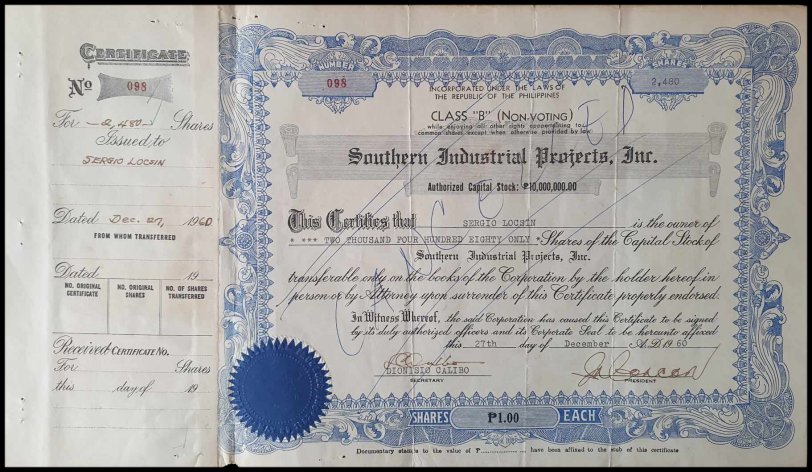 CERTIFICATE
No 098
For -2,480- Shares
Issued to
SERGIO LOCSIN
Dated Dec. 27, 1960
FROM WHOM TRANSFERRED
Dated 19
NO. ORIGINAL CERTIFICATE
NO. ORIGINAL SHARES
NO. OF SHARES TRANSFERRED
Received CERTIFICATE No.
For Shares
this day of 19
NUMBER
098
SHARES
2,480
INCORPORATED UNDER THE LAWS OF
THE REPUBLIC OF THE PHILIPPINES
CLASS "B" (NON-VOTING)
while enjoying all other rights appertaining to
common shares except when otherwise provided by law
Southern Industrial Projects, Inc.
Authorized Capital Stock: ₱10,000,000.00
CANCELLED
This Certifies that SERGIO LOCSIN is the owner of
* *** TWO THOUSAND FOUR HUNDRED EIGHTY ONLY * Shares of the Capital Stock of
Southern Industrial Projects, Inc.
transferable only on the books of the Corporation by the holder hereof in
person or by Attorney upon surrender of this Certificate properly endorsed.
In Witness Whereof, the said Corporation has caused this Certificate to be signed
by its duly authorized officers and its Corporate Seal to be hereunto affixed
this 27th day of December A.D. 1960
DIONISIO CALIBO
SECRETARY
PRESIDENT
SHARES ₱1.00 EACH
Documentary stamps to the value of P............ have been affixed to the stub of this certificate